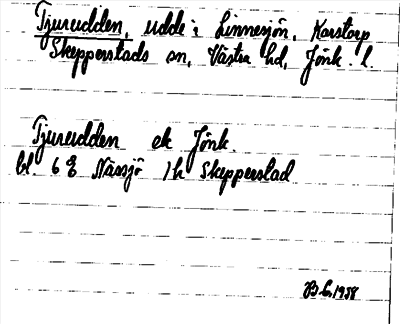 Tjurudden, udde i Linnesjön, Karstorp
Skepperstads sn, Västra hd, Jönk. l.
Tjurudden ek Jönk.
bl. 6 E Nässjö 1 h Skepperstad
1958